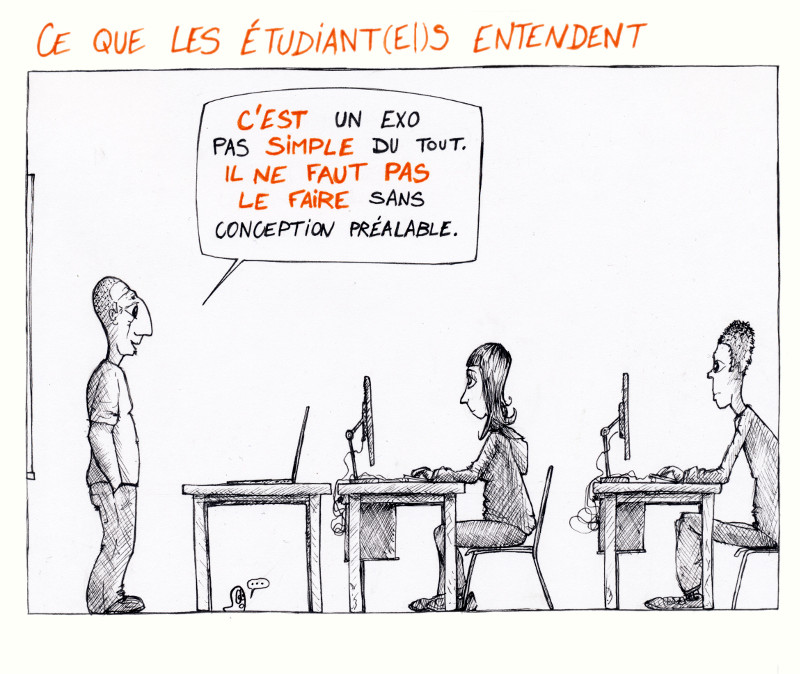 CE QUE LES ÉTUDIANT(E|)S ENTENDENT
C'EST UN EXO
PAS SIMPLE DU TOUT.
IL NE FAUT PAS
LE FAIRE SANS
CONCEPTION PRÉALABLE.
...